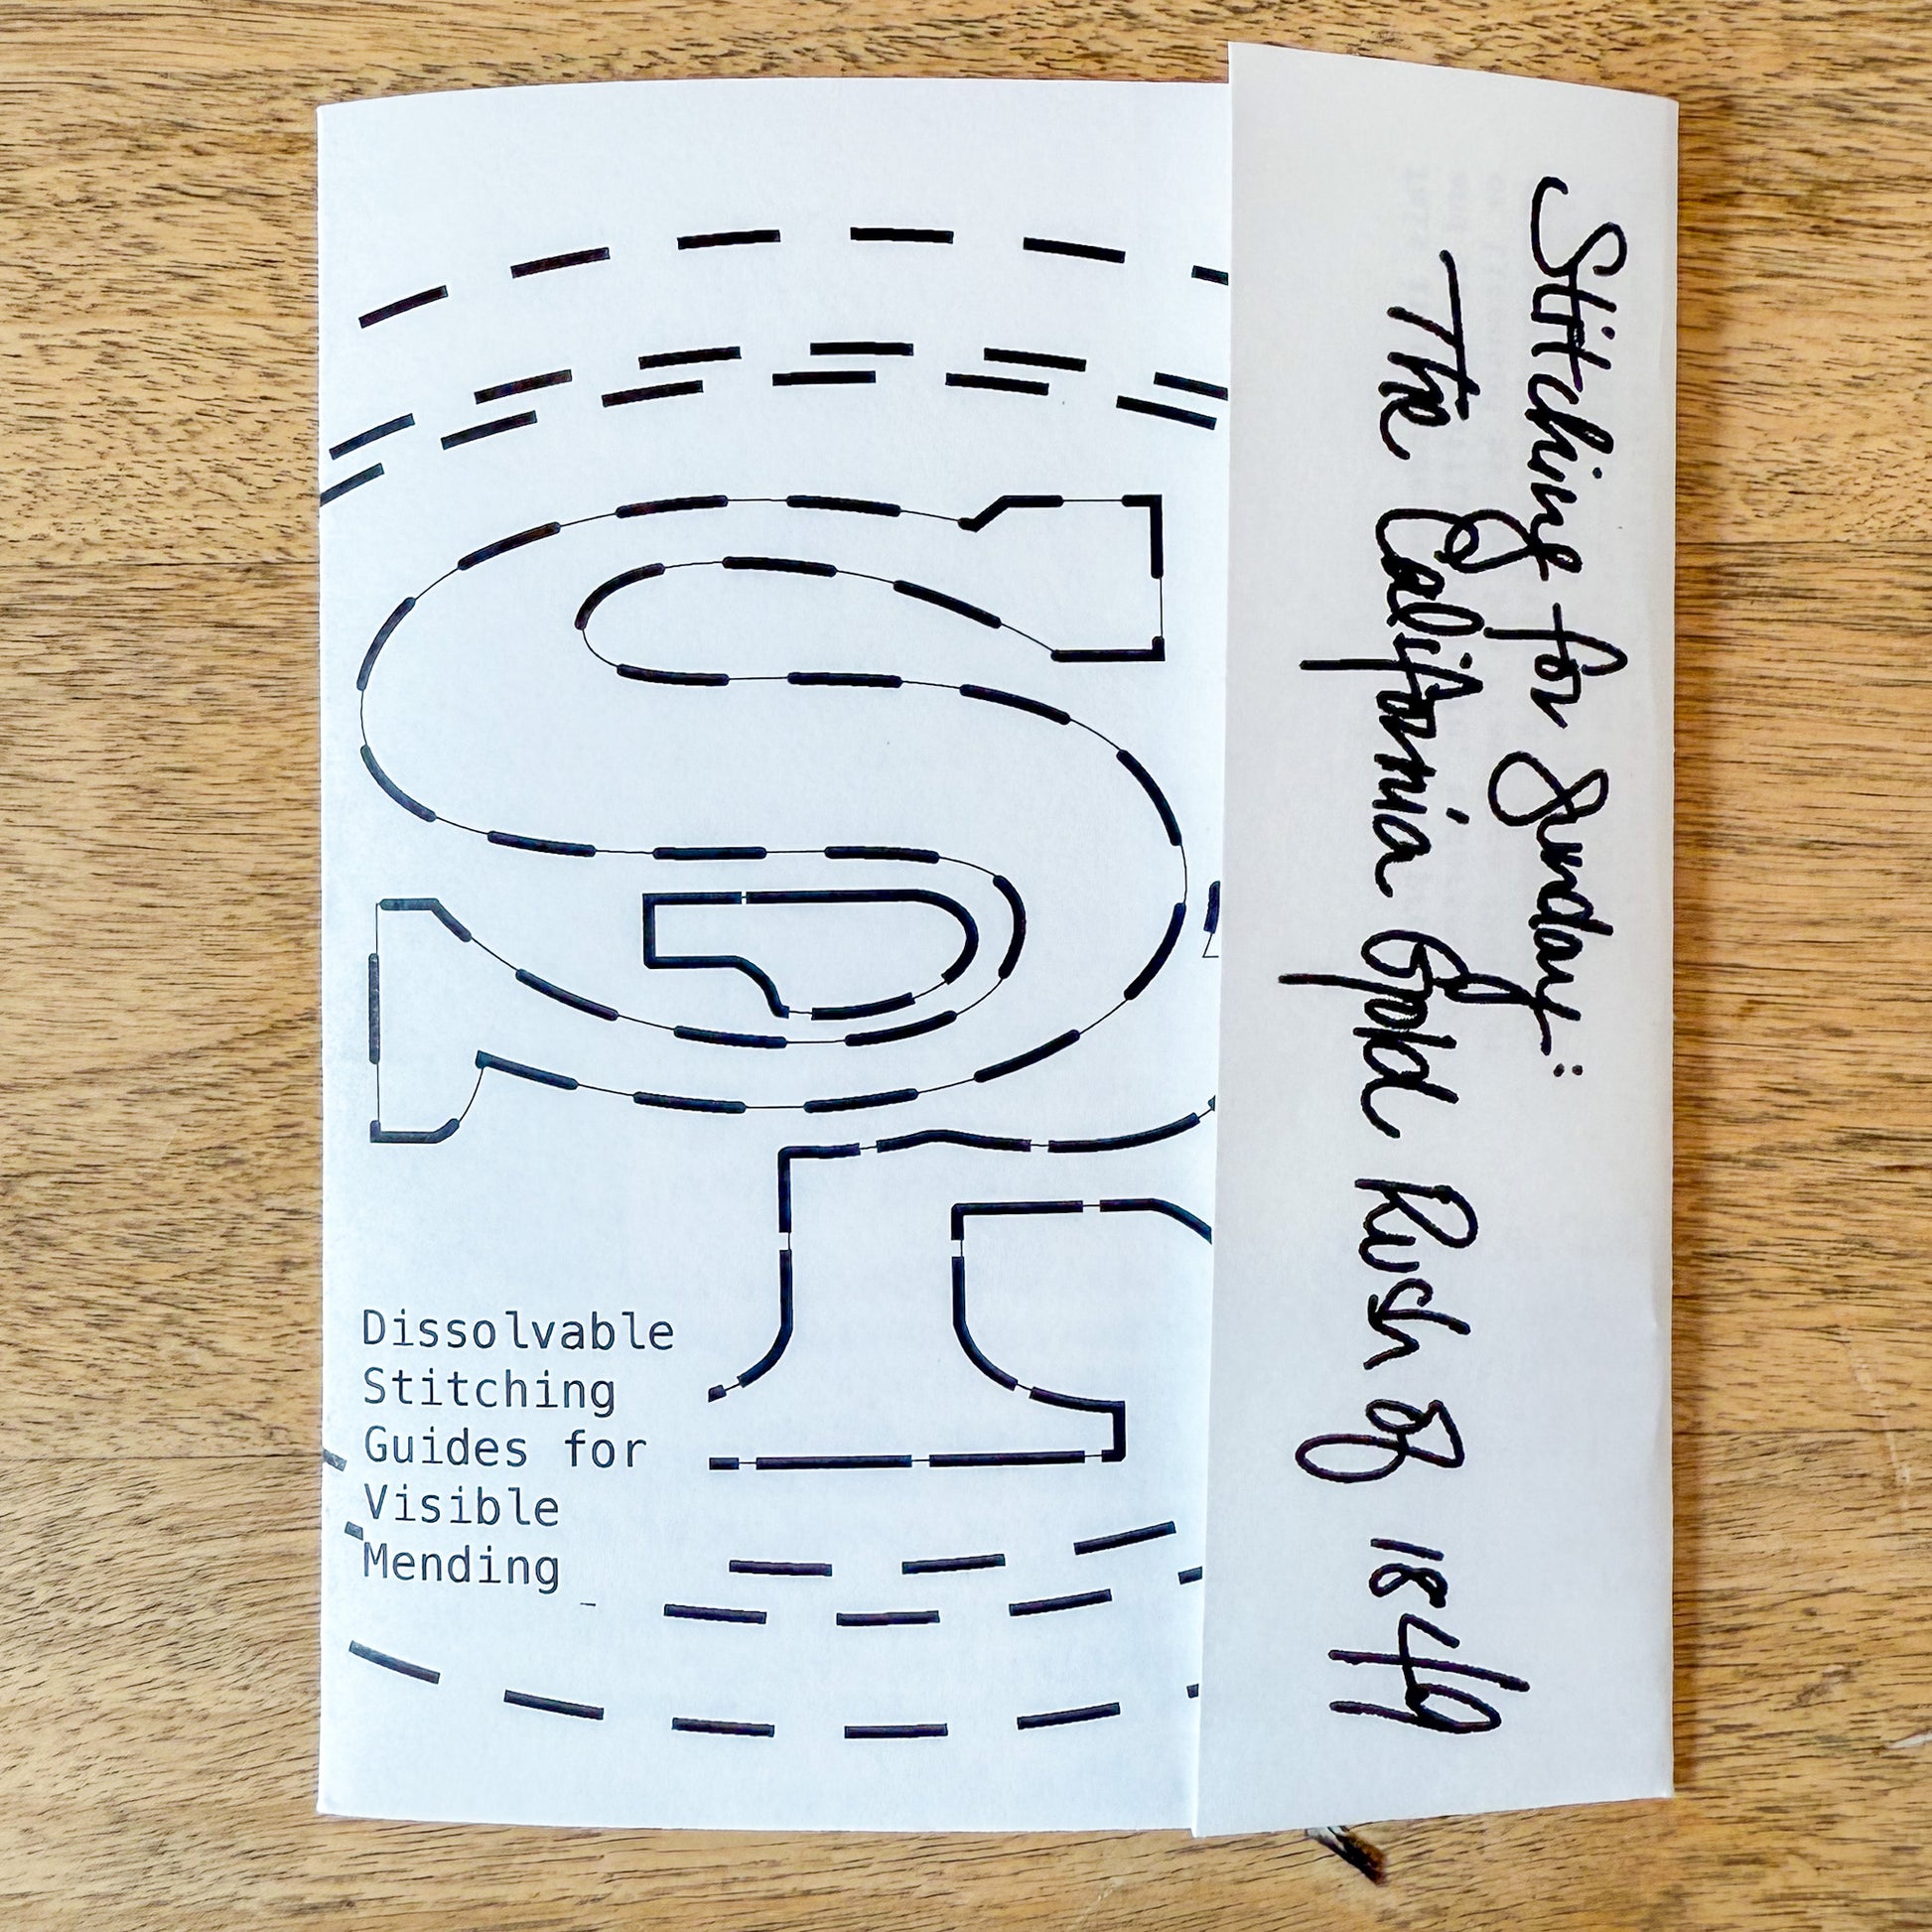 Dissolvable
Stitching
Guides for
Visible
Mending
Stitching for Sunday:
The California Gold Rush of 1849